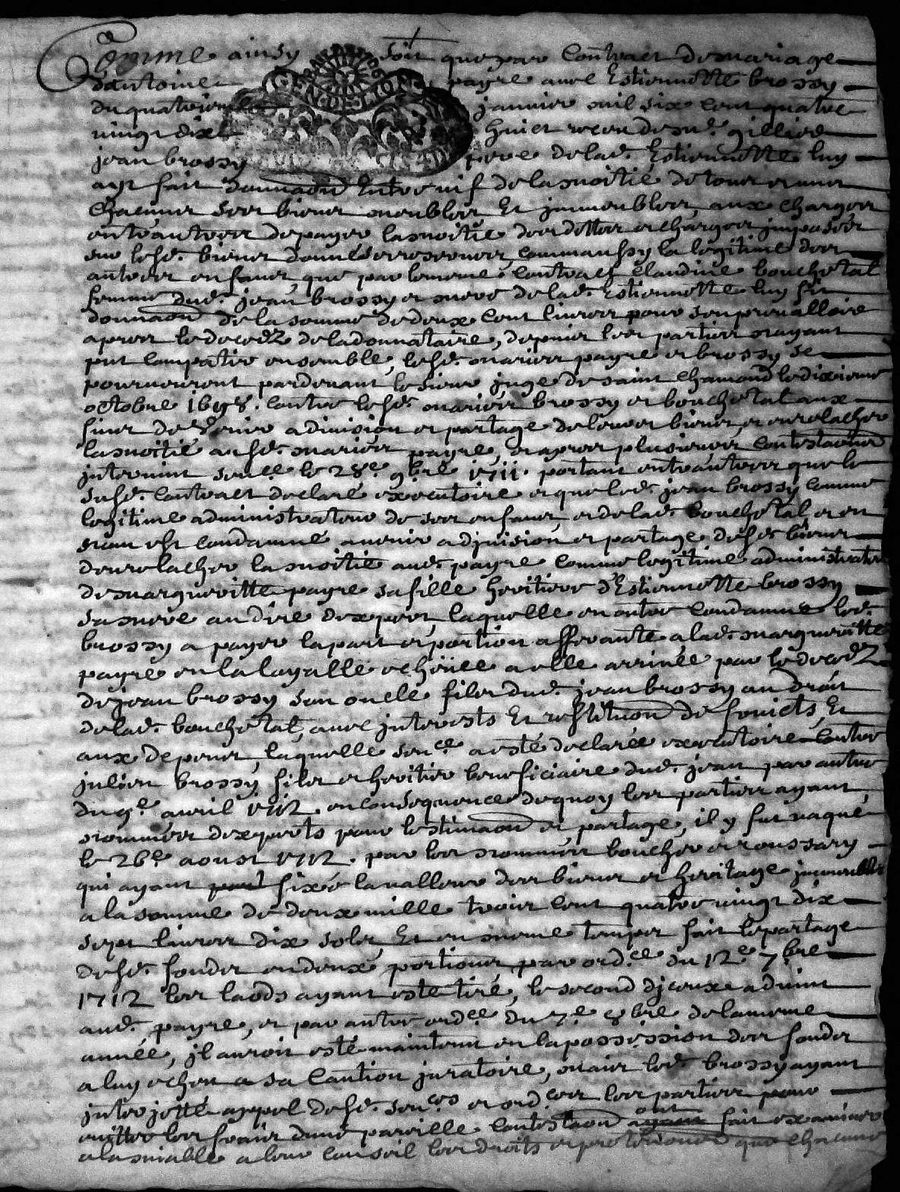 Comme ainsy soit que par Contract de mariage
d'antoine payre avec Estiennette brossy
du quatriem janvier mil six cent quatre
GEN DE LYON
vingt dix huict receu de me gillier
jean brossy pere de lad. Estiennette luy
ayt fait donnaon entre vif de la moitié de tous et uns
chacuns ses biens meubles Et jmmeubles, aux charges
entrautres de payer la moitié des dettes et charges jmposées
sur lesd. biens donnés et reservés, comm'aussy la légitime des
autres enfans, que par le meme Contract Claudine bouchetal
femme dud. jean brossy et mere de lad. Estiennette luy fit
donnaon de la somme de deux cent livres pour sen prevalloir
apres le decedz de la donnataire, depuis les parties n'ayant
peut compatir ensemble, lesd. mariés payre et brossy se
pourveurent pardevant le sieur juge de saint chamond le dixieme
octobre 1698. contre lesd. mariés brossy et bouchetal aux
fins de venir a division et partage de leurs biens, et en relacher
la moitié ausd. mariés payre, et apres plusieurs contestations
jntervint sence le 28e 9bre 1711. portant entrautres que le
susd. Contract declaré executoire et que led. jean brossy comme
legitime administrateur de ses enfans et de lad. bouchetal et en
nom est condamné a venir a division et partage desd. biens
d'en relacher la moitié aud. payre comme legitime administrateur
de margueritte payre sa fille heritiere d'Estiennette brossy
sa mere au dire d'expert, laquelle en outre condamne led.
brossy a payer la part et portion afferante a lad. margueritte
payre en la layalle echeüe a elle arrivée par le decedz
de jean brossy son oncle fils dud. jean brossy au droit
de lad. bouchetal, avec jnterests Et restituon de fruicts, Et
aux depens, laquelle sence a esté declarée executoire contre
julien brossy fils et heritier beneficiaire dud. jean par autre
du 9e avril 1712. en consequence de quoy les parties ayant
nommées d'experts pour l'estimaon et partage, il y fut vaqué
le 26e aoust 1712. par les nommés boucher et roussary
qui ayant fixée la valleur des biens et heritage jmmeubles
a la somme de deux mille trois cent quatre vingt dix
sept livres dix sols, Et en meme temps fait le partage
desd. fonds en deux portions, par ordce du 12e 7bre
1712 les laods ayant esté tiré, le second d'jceux advint
aud. payre, et par autre ordce du 7e 8bre de la meme
année, jl auroit esté maintenu en la possession des fonds
a luy echeu a sa caution juratoire, mais led. brossy ayant
jnterjetté appel desd. sences et ordces les parties pour
eviter les frais d'une pareille contestaon ont fait examiner
a l'amiable a leur conseil les droits et pretentions que chacune